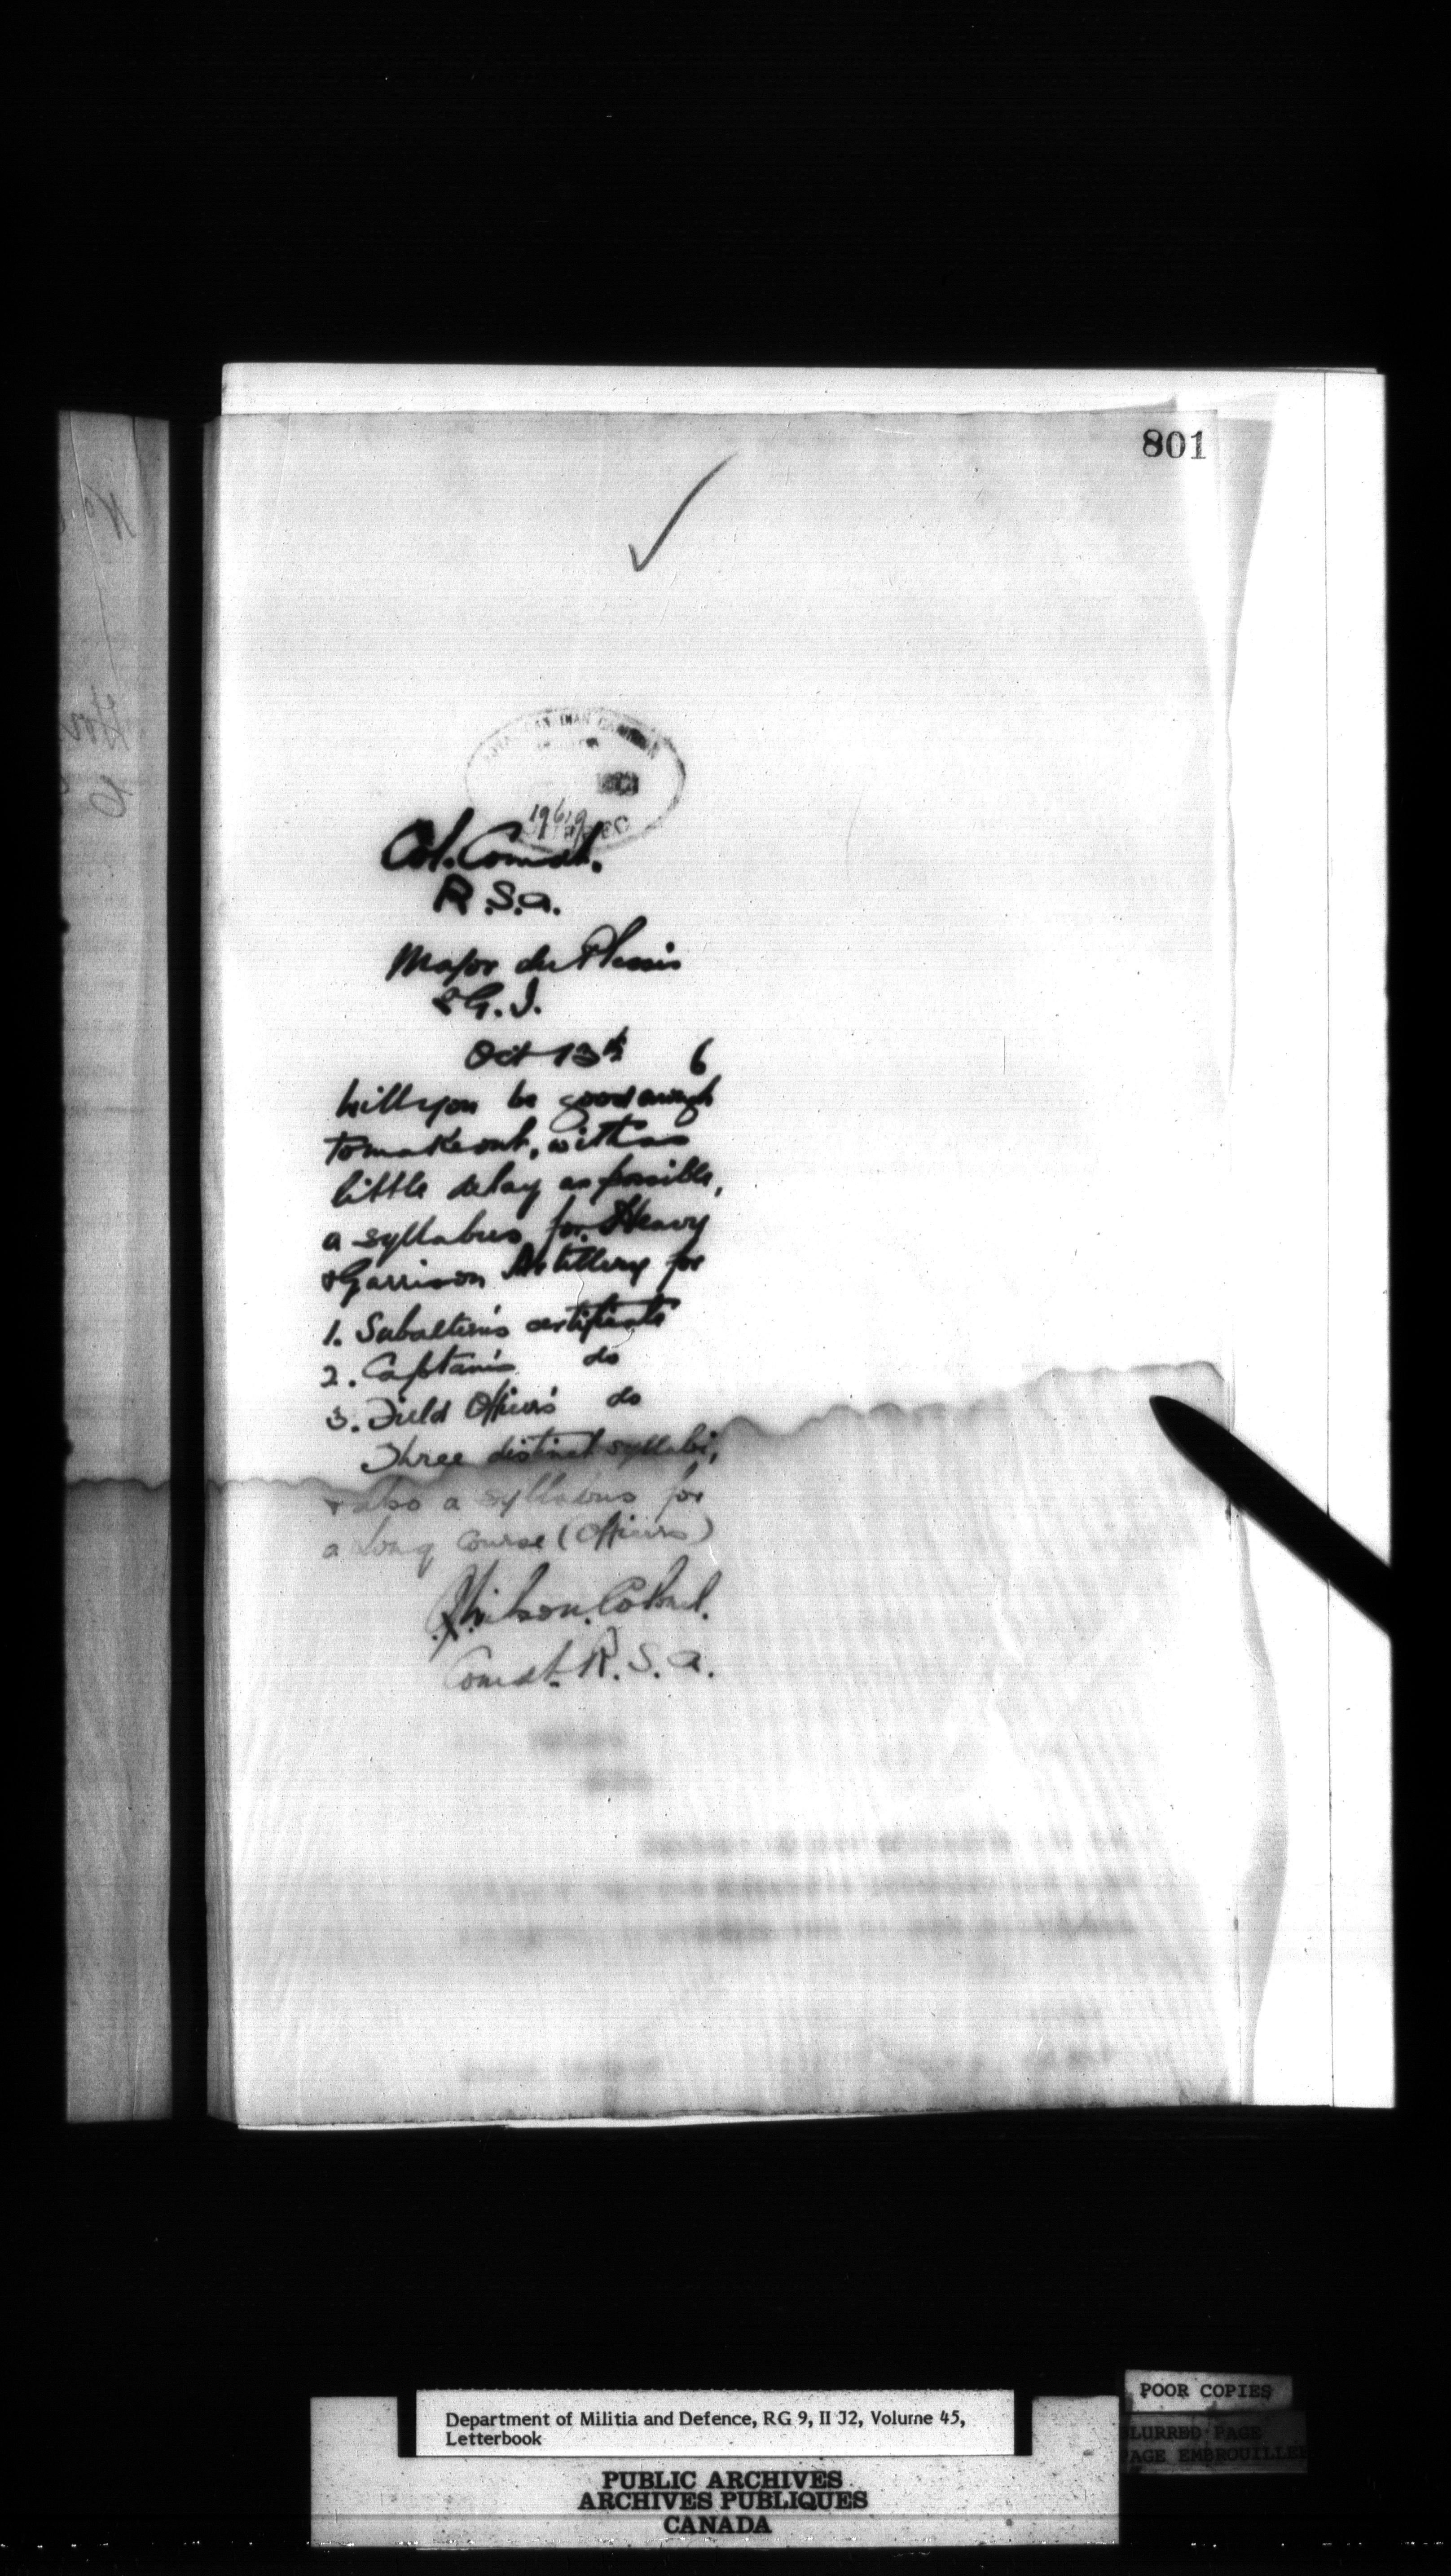 801
19619
Col. Comdt.
R.S.A.
Major du Plessis
S.G.I.
Oct 13th 6
Will you be good enough
to make out, with as
little delay as possible,
a syllabus for Heavy
& Garrison Artillery for
1. Subaltern's certificate
2. Captain's do
3. Field Officers' do
Three distinct syllabi,
& also a syllabus for
a Long Course (Officers)
Wilson. Colonel.
Comdt. R.S.A.
POOR COPIES
BLURRED PAGE
PAGE EMBROUILLEE
Department of Militia and Defence, RG 9, II J2, Volume 45,
Letterbook
PUBLIC ARCHIVES
ARCHIVES PUBLIQUES
CANADA